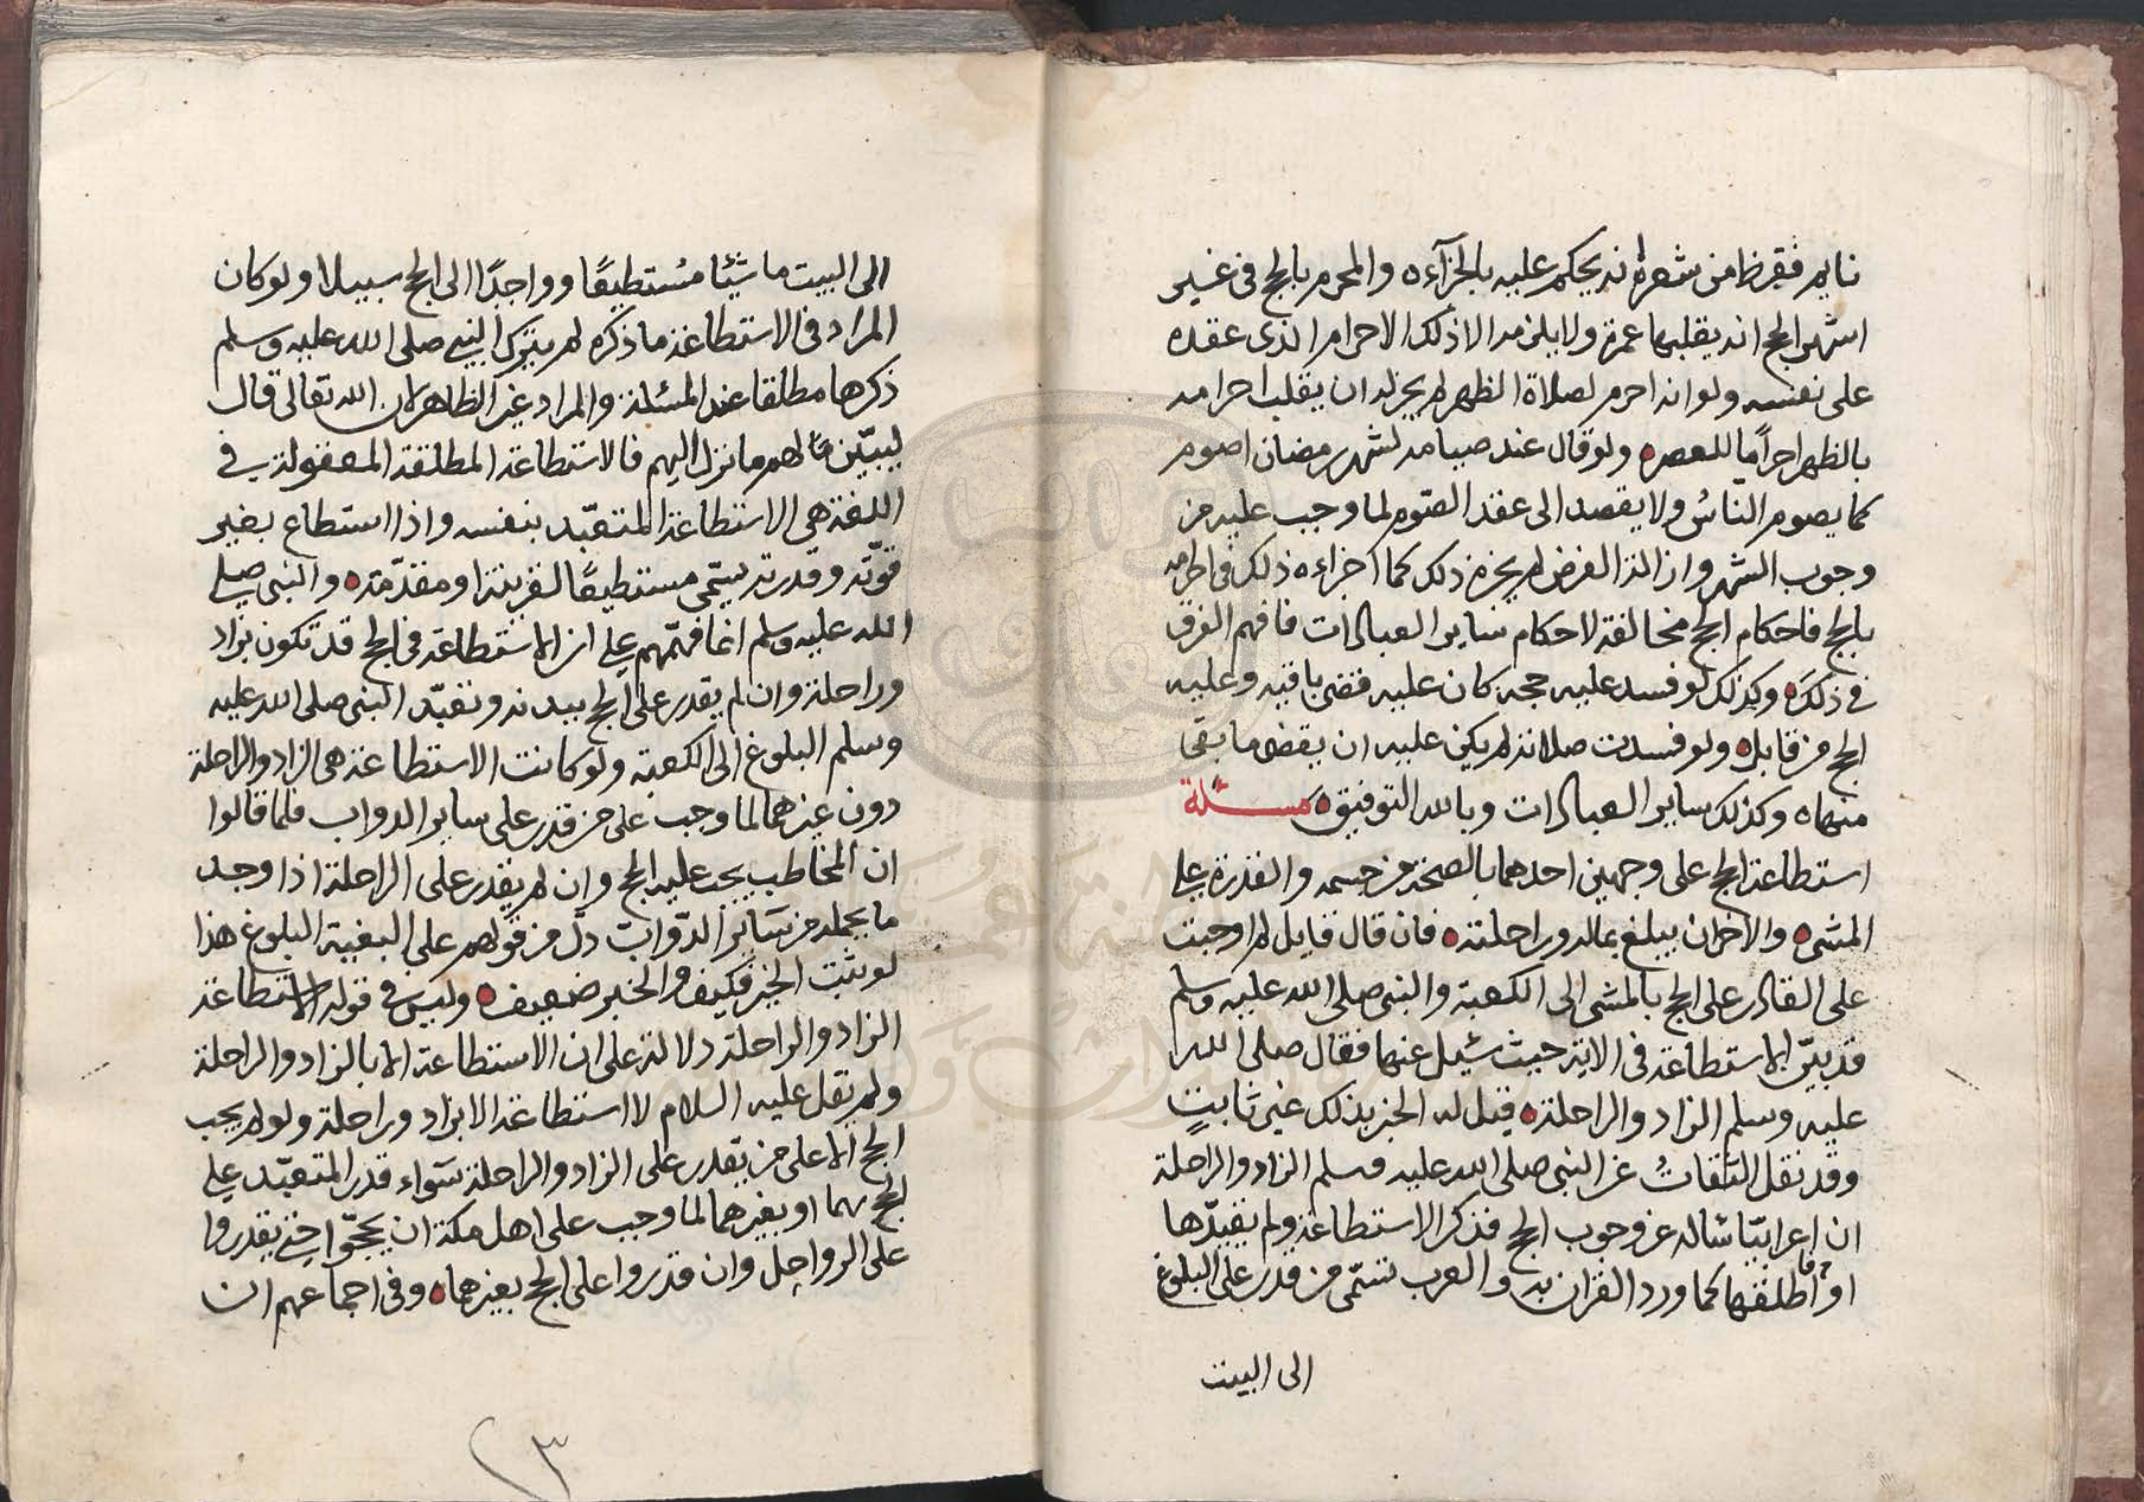 نايم فقرظ من شعره انه يحكم عليه بالجزآء ه والمحرم بالحج في غير
اشهر الحج انه يقلبها عمرة ولا يلزمه الا ذلك الاحرام الذي عقده
على نفسه ولو انه احرم لصلاة الظهر لم يجز له ان يقلب احرامه
بالظهر احراما للعصر ه ولو قال عند صيامه لشهر رمضان اصوم
كما يصوم الناس ولا يقصد الى عقد الصوم لما وجب عليه من
وجوب الشهر وازالة الفرض لم يجزه ذلك كما اجزاءه ذلك في احرامه
بالحج فاحكام الحج مخالفة لاحكام ساير العبادات فافهم الفرق
في ذلك ه وكذلك لو فسد عليه حجه كان عليه قضى باقيه وعليه
الحج من قابل ه ولو فسدت صلاته لم يكن عليه ان يقضى ما بقى
منها ه وكذلك ساير العبادات وبالله التوفيق ه مسئلة
استطاعة الحج على وجهين احدهما بالصحة من جسمه والقدرة على
المشي ه والاخر ان يبلغ بماله وراحلته ه فان قال قايل لم اوجبت
على القادر على الحج بالمشى الى الكعبة والنبي صلى الله عليه وسلم
قد بيّن الاستطاعة في الاية حيث سُئيل عنها فقال صلى الله
عليه وسلم الزاد والراحلة ه قيل له الخبر بذلك غير ثابتٍ
وقد نقل الثقاتُ عن النبي صلى الله عليه وسلم الزاد والراحلة
ان اعرابيّا ساله عن وجوب الحج فذكر الاستطاعة ولم يقيّدها
او اطلقها كما ورد القران به والعرب تسمّى من قدر على البلوغ
الى البيت
الى البيت ماشيًا مُستطيعًا وواجدًا الى الحج سبيلا ولو كان
المراد في الاستطاعة ما ذكره لم يترك النبي صلى الله عليه وسلم
ذكرها مطلقا عند المسئلة والمراد غير الظاهر لان الله تعالى قال
ليبيّن لهم ما نزل اليهم فالاستطاعة المطلقة المعقولة في
اللغة هي الاستطاعة المتعبّد بنفسه واذا استطاع بغير
قوّته وقدرته يسمّى مستطيعًا لقرينة او مقدّمة ه والنبي صلى
الله عليه وسلم انما فهّمهم على ان الاستطاعة في الحج قد تكون بزاد
وراحلة وان لم يقدر على الحج ببدنه وتعبّد النبي صلى الله عليه
وسلم البلوغ الى الكعبة ولو كانت الاستطاعة هي الزاد والراحلة
دون غيرهما لما وجب على من قدر على ساير الدواب فلما قالوا
ان المخاطب يجب عليه الحج وان لم يقدر على الراحلة اذا وجد
ما يحمله من ساير الدوّاب دلّ من قولهم على البغية البلوغ هذا
لو يثبت الخبر فكيف والخبر ضعيف ه وليس في قوله الاستطاعة
الزاد والراحلة دلالة على ان الاستطاعة الا بالزاد والراحلة
ولم يقل عليه السلام لا استطاعة الا بزاد وراحلة ولو لم يجب
الحج الا على من يقدر على الزاد والراحلة سوآء قدر المتعبّد على
الحج بهما او بغيرهما لما وجب على اهل مكة ان يحجّوا حتى يقدروا
على الرواحل وان قدروا على الحج بغيرهما ه وفي اجماعهم ان